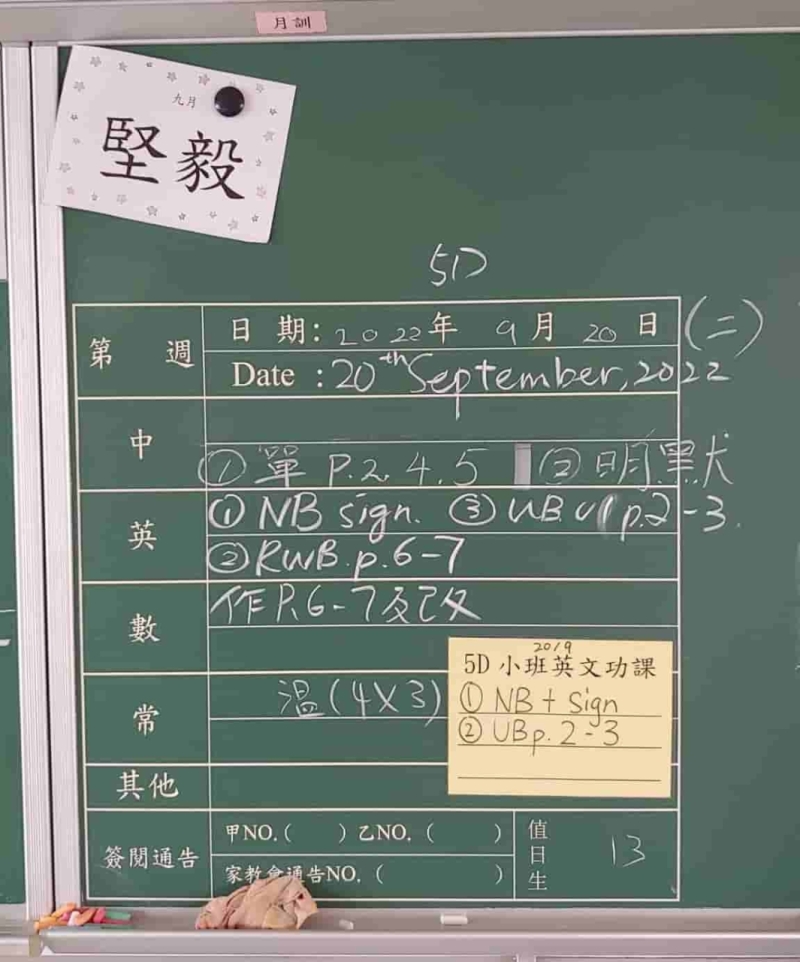 月訓
九月
堅毅
5D
第 週
日 期: 2022年 9月 20日 (二)
Date : 20th September, 2022
中
① 單 P.2, 4, 5 ② 明默
英
① NB sign. ③ UB. U1 p.2-3.
② RWB. p. 6-7
數
作P.6-7及改
常
溫(4X3)
其他
20/9
5D 小班英文功課
① NB + Sign
② UB p. 2-3
簽閱通告
甲NO. ( ) 乙NO. ( )
家教會通告NO. ( )
值日生
13